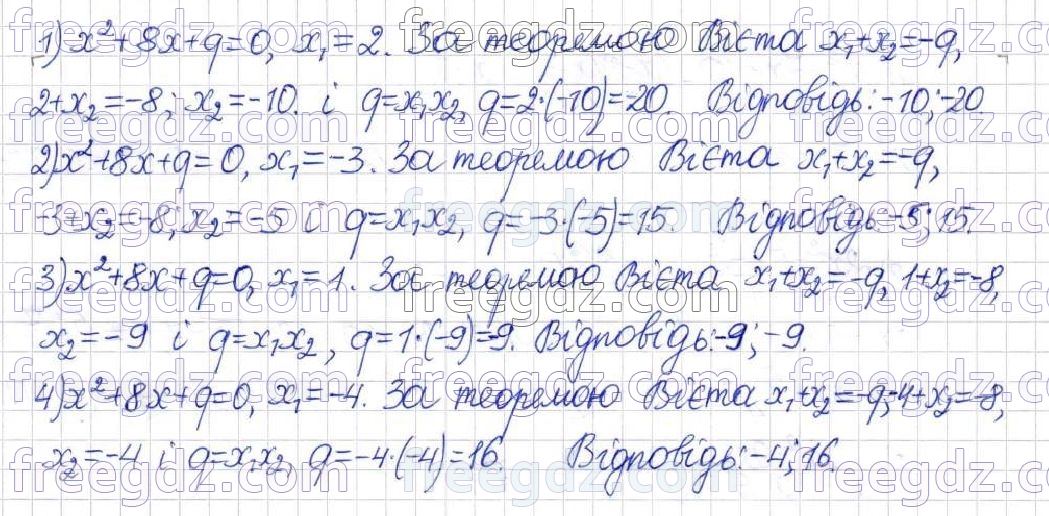 1) x²+8x+q=0, x₁=2. За теоремою Вієта x₁+x₂=-q,
2+x₂=-8; x₂=-10. і q=x₁x₂, q=2·(-10)=-20. Відповідь: -10; -20.
2) x²+8x+q=0, x₁=-3. За теоремою Вієта x₁+x₂=-q,
-3+x₂=-8; x₂=-5 і q=x₁x₂, q=-3·(-5)=15. Відповідь: -5; 15.
3) x²+8x+q=0, x₁=1. За теоремою Вієта x₁+x₂=-q, 1+x₂=-8,
x₂=-9 і q=x₁x₂, q=1·(-9)=-9. Відповідь: -9; -9.
4) x²+8x+q=0, x₁=-4. За теоремою Вієта x₁+x₂=-q, -4+x₂=-8,
x₂=-4 і q=x₁x₂, q=-4·(-4)=16. Відповідь: -4; 16.
freegdz.com